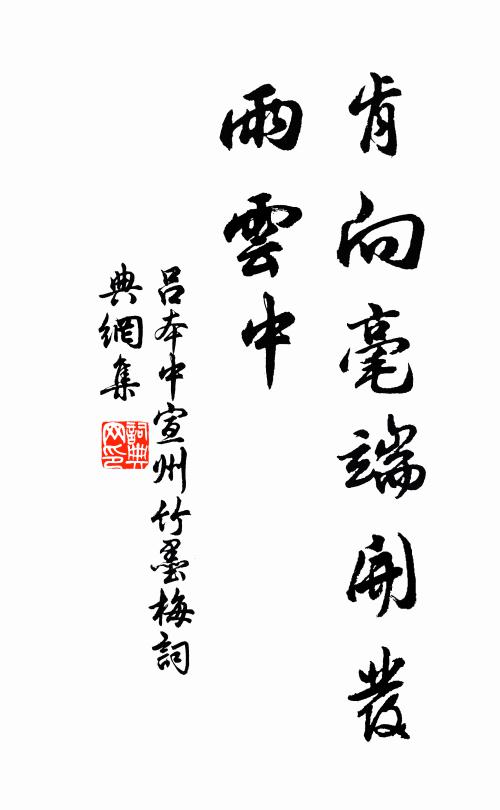 肯向毫端開發
雨雲中
呂本中宣州竹墨梅詞
典網集
詞典网印